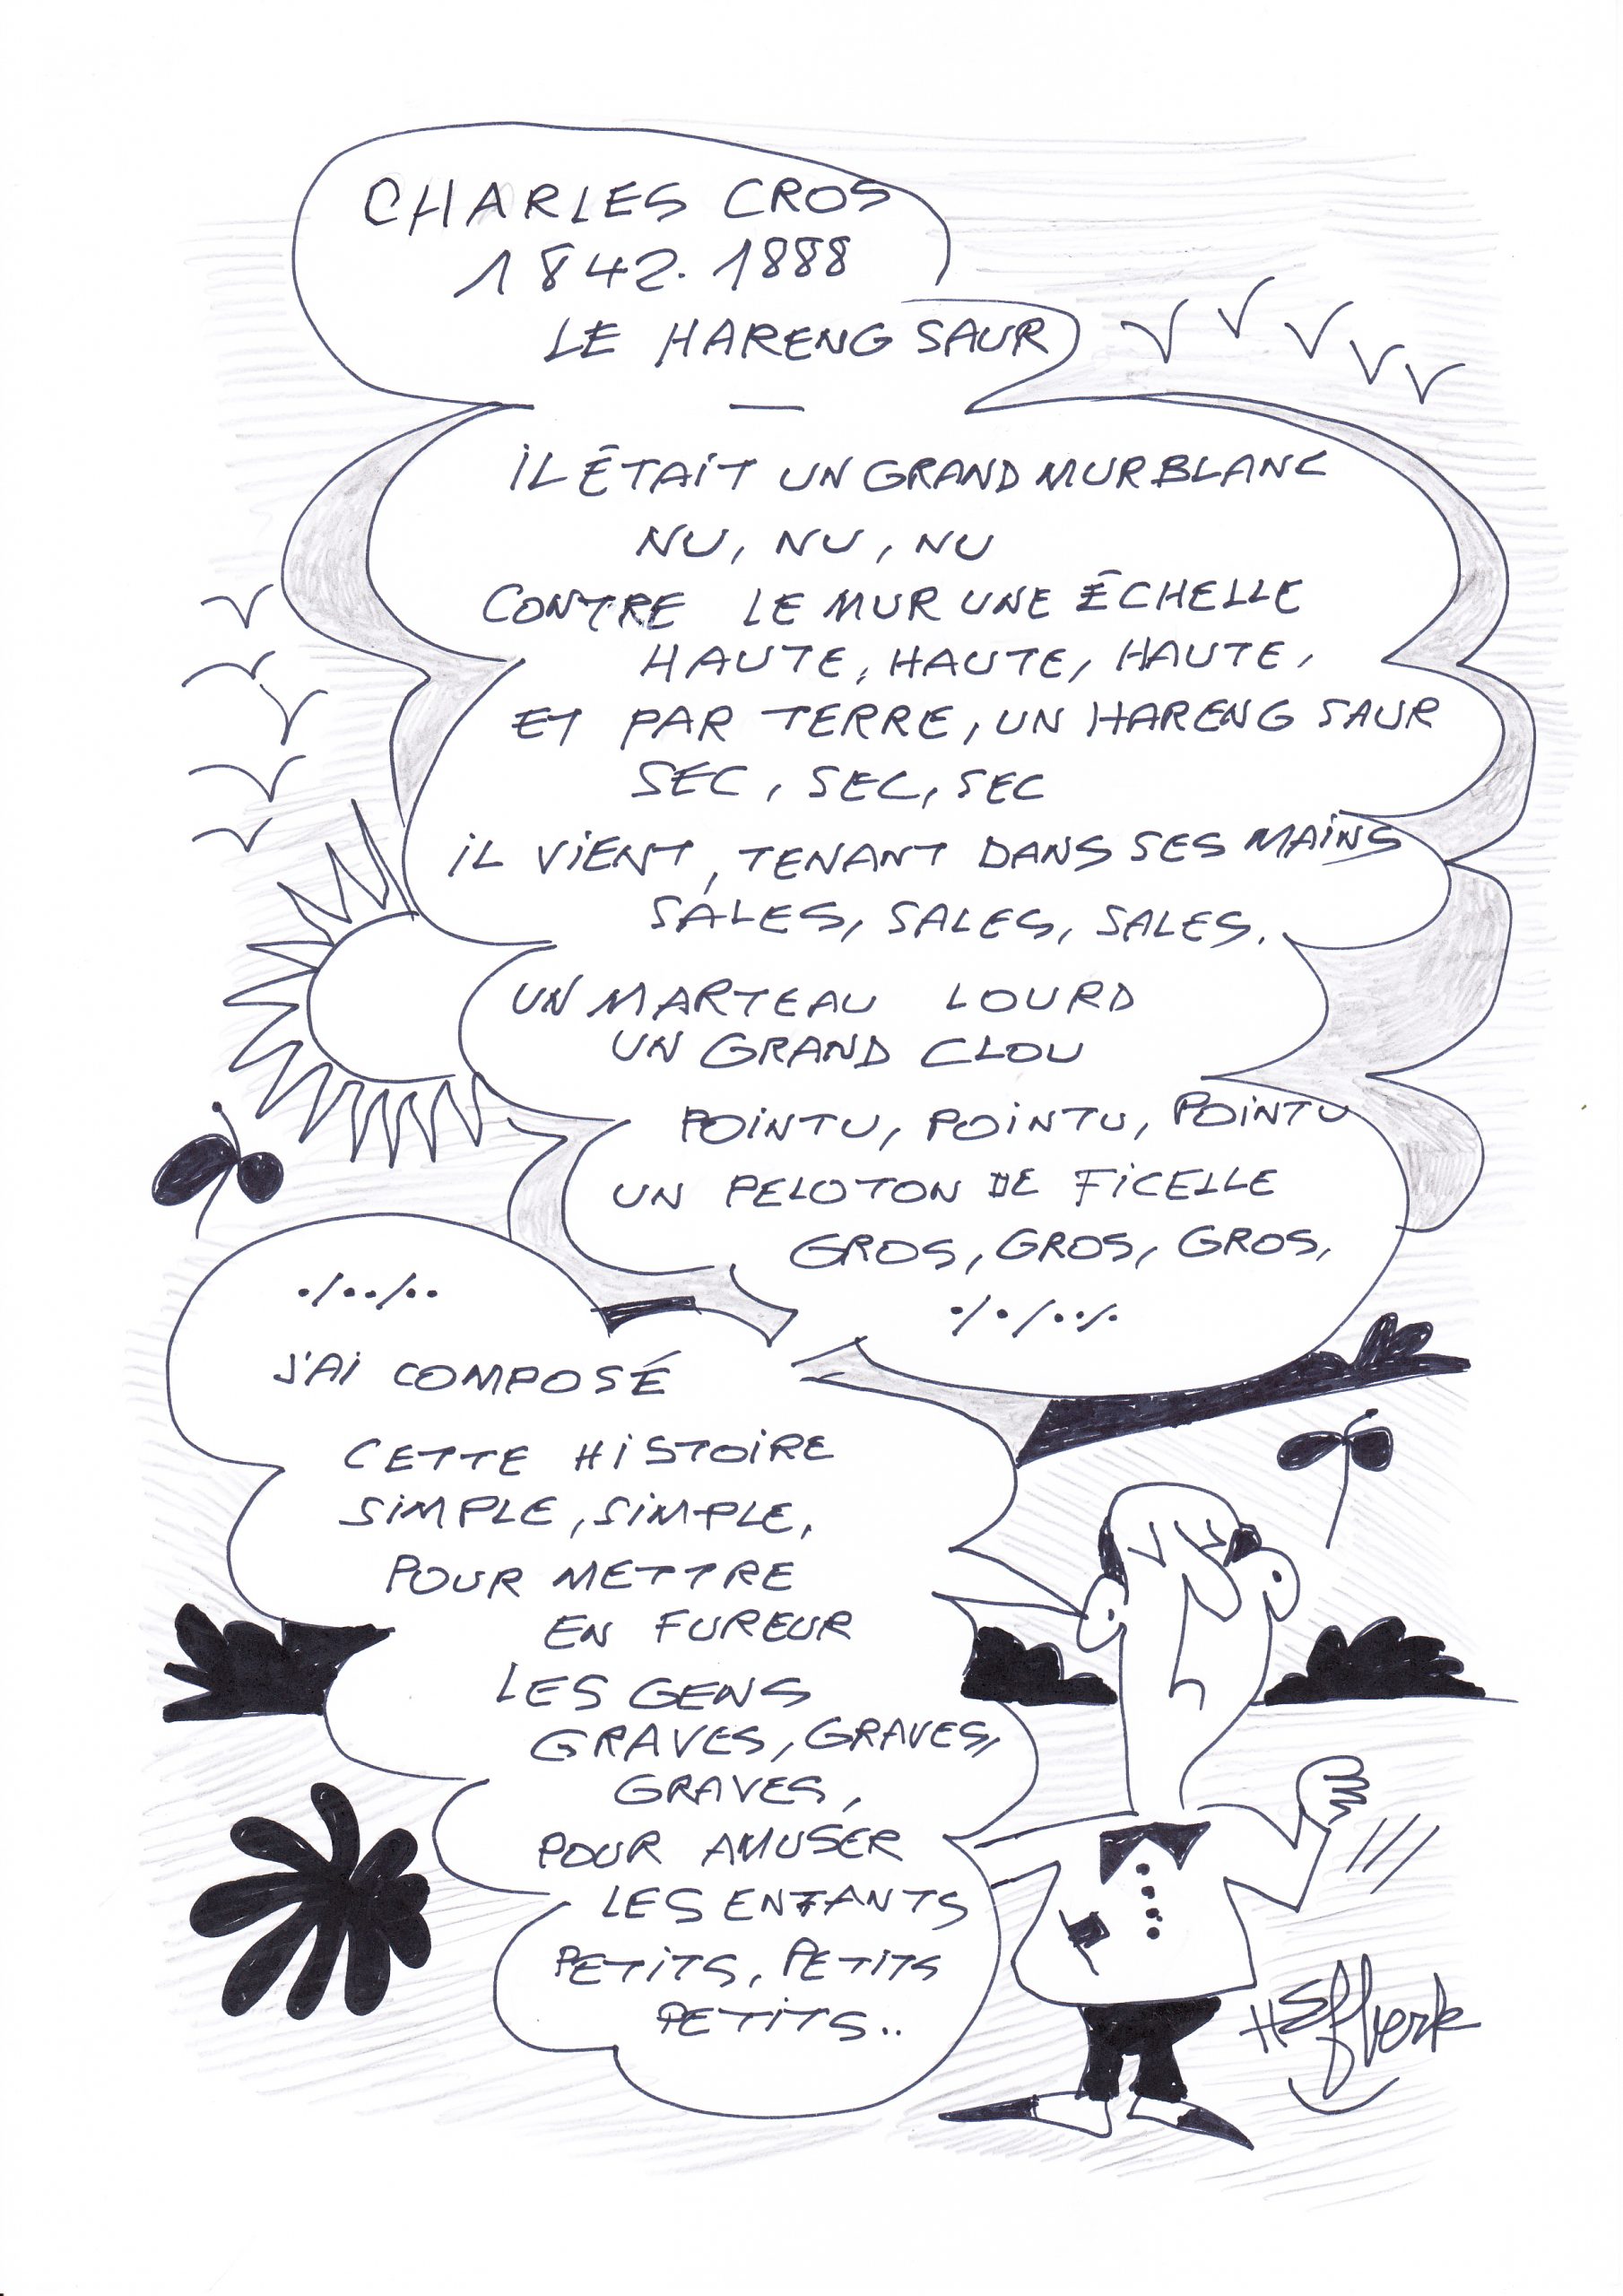 CHARLES CROS
1842.1888
LE HARENG SAUR
—
IL ÉTAIT UN GRAND MUR BLANC
NU, NU, NU
CONTRE LE MUR UNE ÉCHELLE
HAUTE, HAUTE, HAUTE,
ET PAR TERRE, UN HARENG SAUR
SEC, SEC, SEC
IL VIENT, TENANT DANS SES MAINS
SALES, SALES, SALES.
UN MARTEAU LOURD
UN GRAND CLOU
POINTU, POINTU, POINTU
UN PELOTON DE FICELLE
GROS, GROS, GROS,
./././..
./../..
J'AI COMPOSÉ
CETTE HISTOIRE
SIMPLE, SIMPLE,
POUR METTRE
EN FUREUR
LES GENS
GRAVES, GRAVES,
GRAVES,
POUR AMUSER
LES ENFANTS
PETITS, PETITS
PETITS..